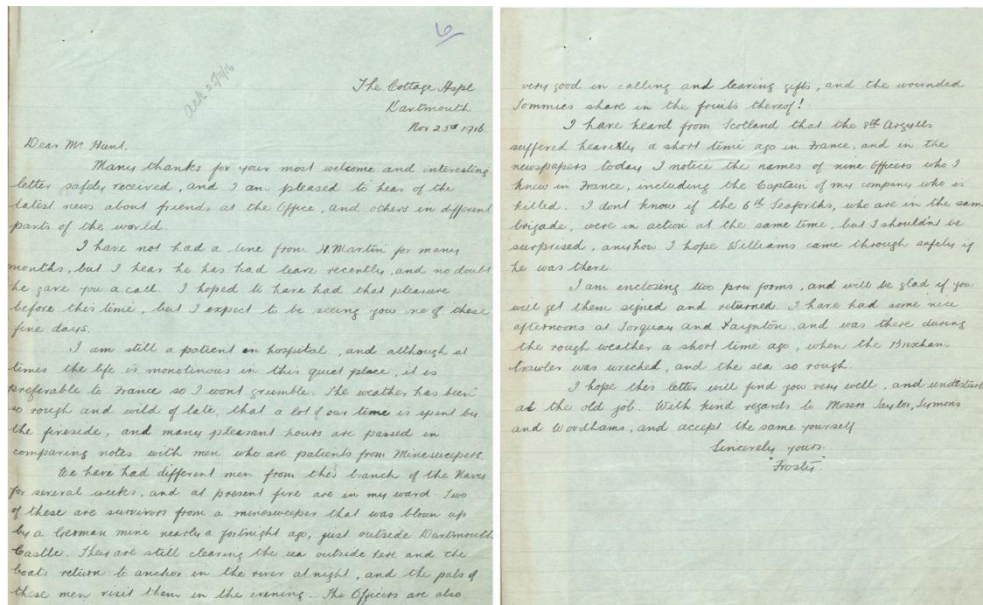 6
The Cottage Hospl
Dartmouth
Nov 23rd 1916.
Dear Mr Hunt.
Many thanks for your most welcome and interesting
letter safely received, and I am pleased to hear of the
latest news about friends at the Office, and others in different
parts of the world.
I have not had a line from H. Martin for many
months, but I hear he has had leave recently, and no doubt
he gave you a call. I hoped to have had that pleasure
before this time, but I expect to be seeing you one of these
fine days.
I am still a patient in hospital, and although at
times the life is monotinous in this quiet place, it is
preferable to France so I wont grumble. The weather has been
so rough and wild of late, that a lot of our time is spent by
the fireside, and many pleasant hours are passed in
comparing notes with men who are patients from Minesweepers.
We have had different men from this branch of the Navy
for several weeks, and at present five are in my ward. Two
of these are survivors from a minesweeper that was blown up
by a German mine nearly a fortnight ago, just outside Dartmouth
Castle. They are still clearing the sea outside here and the
boats return to anchor in the river at night, and the pals of
these men visit them in the evening. The Officers are also
very good in calling and leaving gifts, and the wounded
Tommies share in the fruits thereof!
I have heard from Scotland that the 8th Argylls
suffered heavily a short time ago in France, and in the
newspapers today I notice the names of nine Officers who I
knew in France, including the Captain of my company who is
killed. I dont know if the 6th Seaforths, who are in the same
brigade, were in action at the same time, but I shouldnt be
surprised, anyhow I hope Williams came through safely if
he was there.
I am enclosing two forms, and will be glad if you
will get them signed and returned. I have had some nice
afternoons at Torquay and Paignton, and was there during
the rough weather a short time ago, when the Brixham
trawler was wrecked, and the sea so rough.
I hope this letter will find you very well, and undisturbed
at the old job. With kind regards to Messrs Taylor,
and Woodhams, and accept the same yourself
Sincerely yours.
"Frosty"